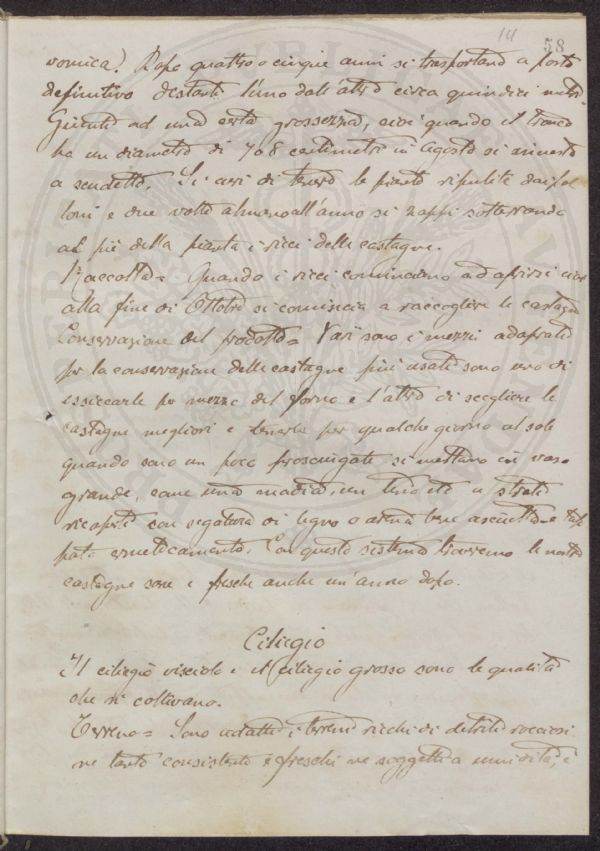 14
58
vomica). Dopo quattro o cinque anni si trasportano a posto
definitivo distanti l'uno dall'altro circa quindici metri.
Giunti ad una certa grossezza, cioè quando il tronco
ha un diametro di 7 o 8 centimetri in Agosto si innesta
a scudetto. Si curi di tenere le piante ripulite dai pol
loni e due volte almeno all'anno si zappi sotterrando
al piè della pianta i ricci delle castagne.
Raccolta = Quando i ricci cominciano ad aprirsi cioè
alla fine di Ottobre si comincia a raccogliere le castagne
Conservazione del prodotto = Vari sono i mezzi adoprati
per la conservazione delle castagne più usati sono uno di
essiccarle per mezzo del forno e l'altro di scegliere le
castagne migliori e tenerle per qualche giorno al sole
quando sono un poco prosciugate si mettano in vaso
grande, come una madia, un tino etc a strati
ricoperti con segatura di legno o arena bene asciutta e tap
pate ermeticamente. Con questo sistema troveremo le nostre
castagne sane e fresche anche un'anno dopo.
Ciliegio
Il ciliegio visciolo e il ciliegio grosso sono le qualità
che si coltivano.
Terreno = Sono adatti i terreni ricchi di detriti rocciosi
ne tanto consistenti e freschi ne soggetti a umidità, e